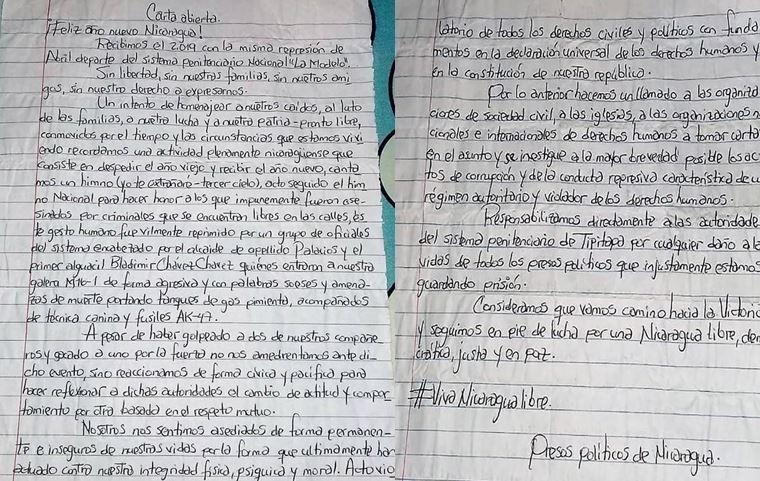 Carta abierta.
¡Feliz año nuevo Nicaragua!
Recibimos el 2019 con la misma represión de
Abril departe del sistema penitenciario Nacional "La Modelo".
Sin libertad, sin nuestras familias, sin nuestros ami
gos, sin nuestro derecho a expresarnos.
Un intento de homenajear a nuestros caídos, al luto
de las familias, a nuestra lucha y a nuestra patria-pronto libre,
conmovidos por el tiempo y las circunstancias que estamos vivi
endo recordamos una actividad plenamente nicaragüense que
consiste en despedir el año viejo y recibir el año nuevo, canta
mos un himno (yo te extrañaré-tercer cielo), acto seguido el him
no Nacional para hacer honor a los que impunemente fueron ase-
sinados por criminales que se encuentran libres en las calles, es
te gesto humano fue vilmente reprimido por un grupo de oficiales
del sistema encabezado por el alcaide de apellido Palacios y el
primer alguacil Bladimir Chávez Chavez quiénes entraron a nuestra
galera M16-1 de forma agresiva y con palabras soeses y amena-
zas de muerte portando tanques de gas pimienta, acompañados
de técnica canina y fusiles AK-47.
A pesar de haber golpeado a dos de nuestros compañe-
ros y a uno por la fuerza no nos amedrentamos ante di-
cho evento, sino reaccionamos de forma cívica y pacífica para
hacer reflexionar a dichas autoridades el cambio de actitud y compor
tamiento por otra basada en el respeto mutuo.
Nosotros nos sentimos asediados de forma permanen-
te e inseguros de nuestras vidas por la forma que ultimamente han
actuado contra nuestra integridad física, psíquica y moral. Acto vio
latorio de todos los derechos civiles y políticos con funda
mentos en la declaración universal de los derechos humanos y
en la constitución de nuestra república.
Por lo anterior hacemos un llamado a las organiza
ciones de sociedad civil, a las iglesias, a las organizaciones n
cionales e internacionales de derechos humanos a tomar carta
en el asunto y se inestigue a la mayor brevedad posible los ac
tos de corrupción y de la conducta represiva característica de u
régimen autoritario y violador de los derechos humanos.
Responsabilizamos directamente a las autoridade
del sistema penitenciario de Tipitapa por cualquier daño a la
vidas de todos los presos políticos que injustamente estamos
guardando prisión.
Consideramos que vamos camino hacia la Victoria
y seguimos en pie de lucha por una Nicaragua libre, dem
crática, justa y en paz.
#VivaNicaragualibre.
Presos políticos de Nicaragua.